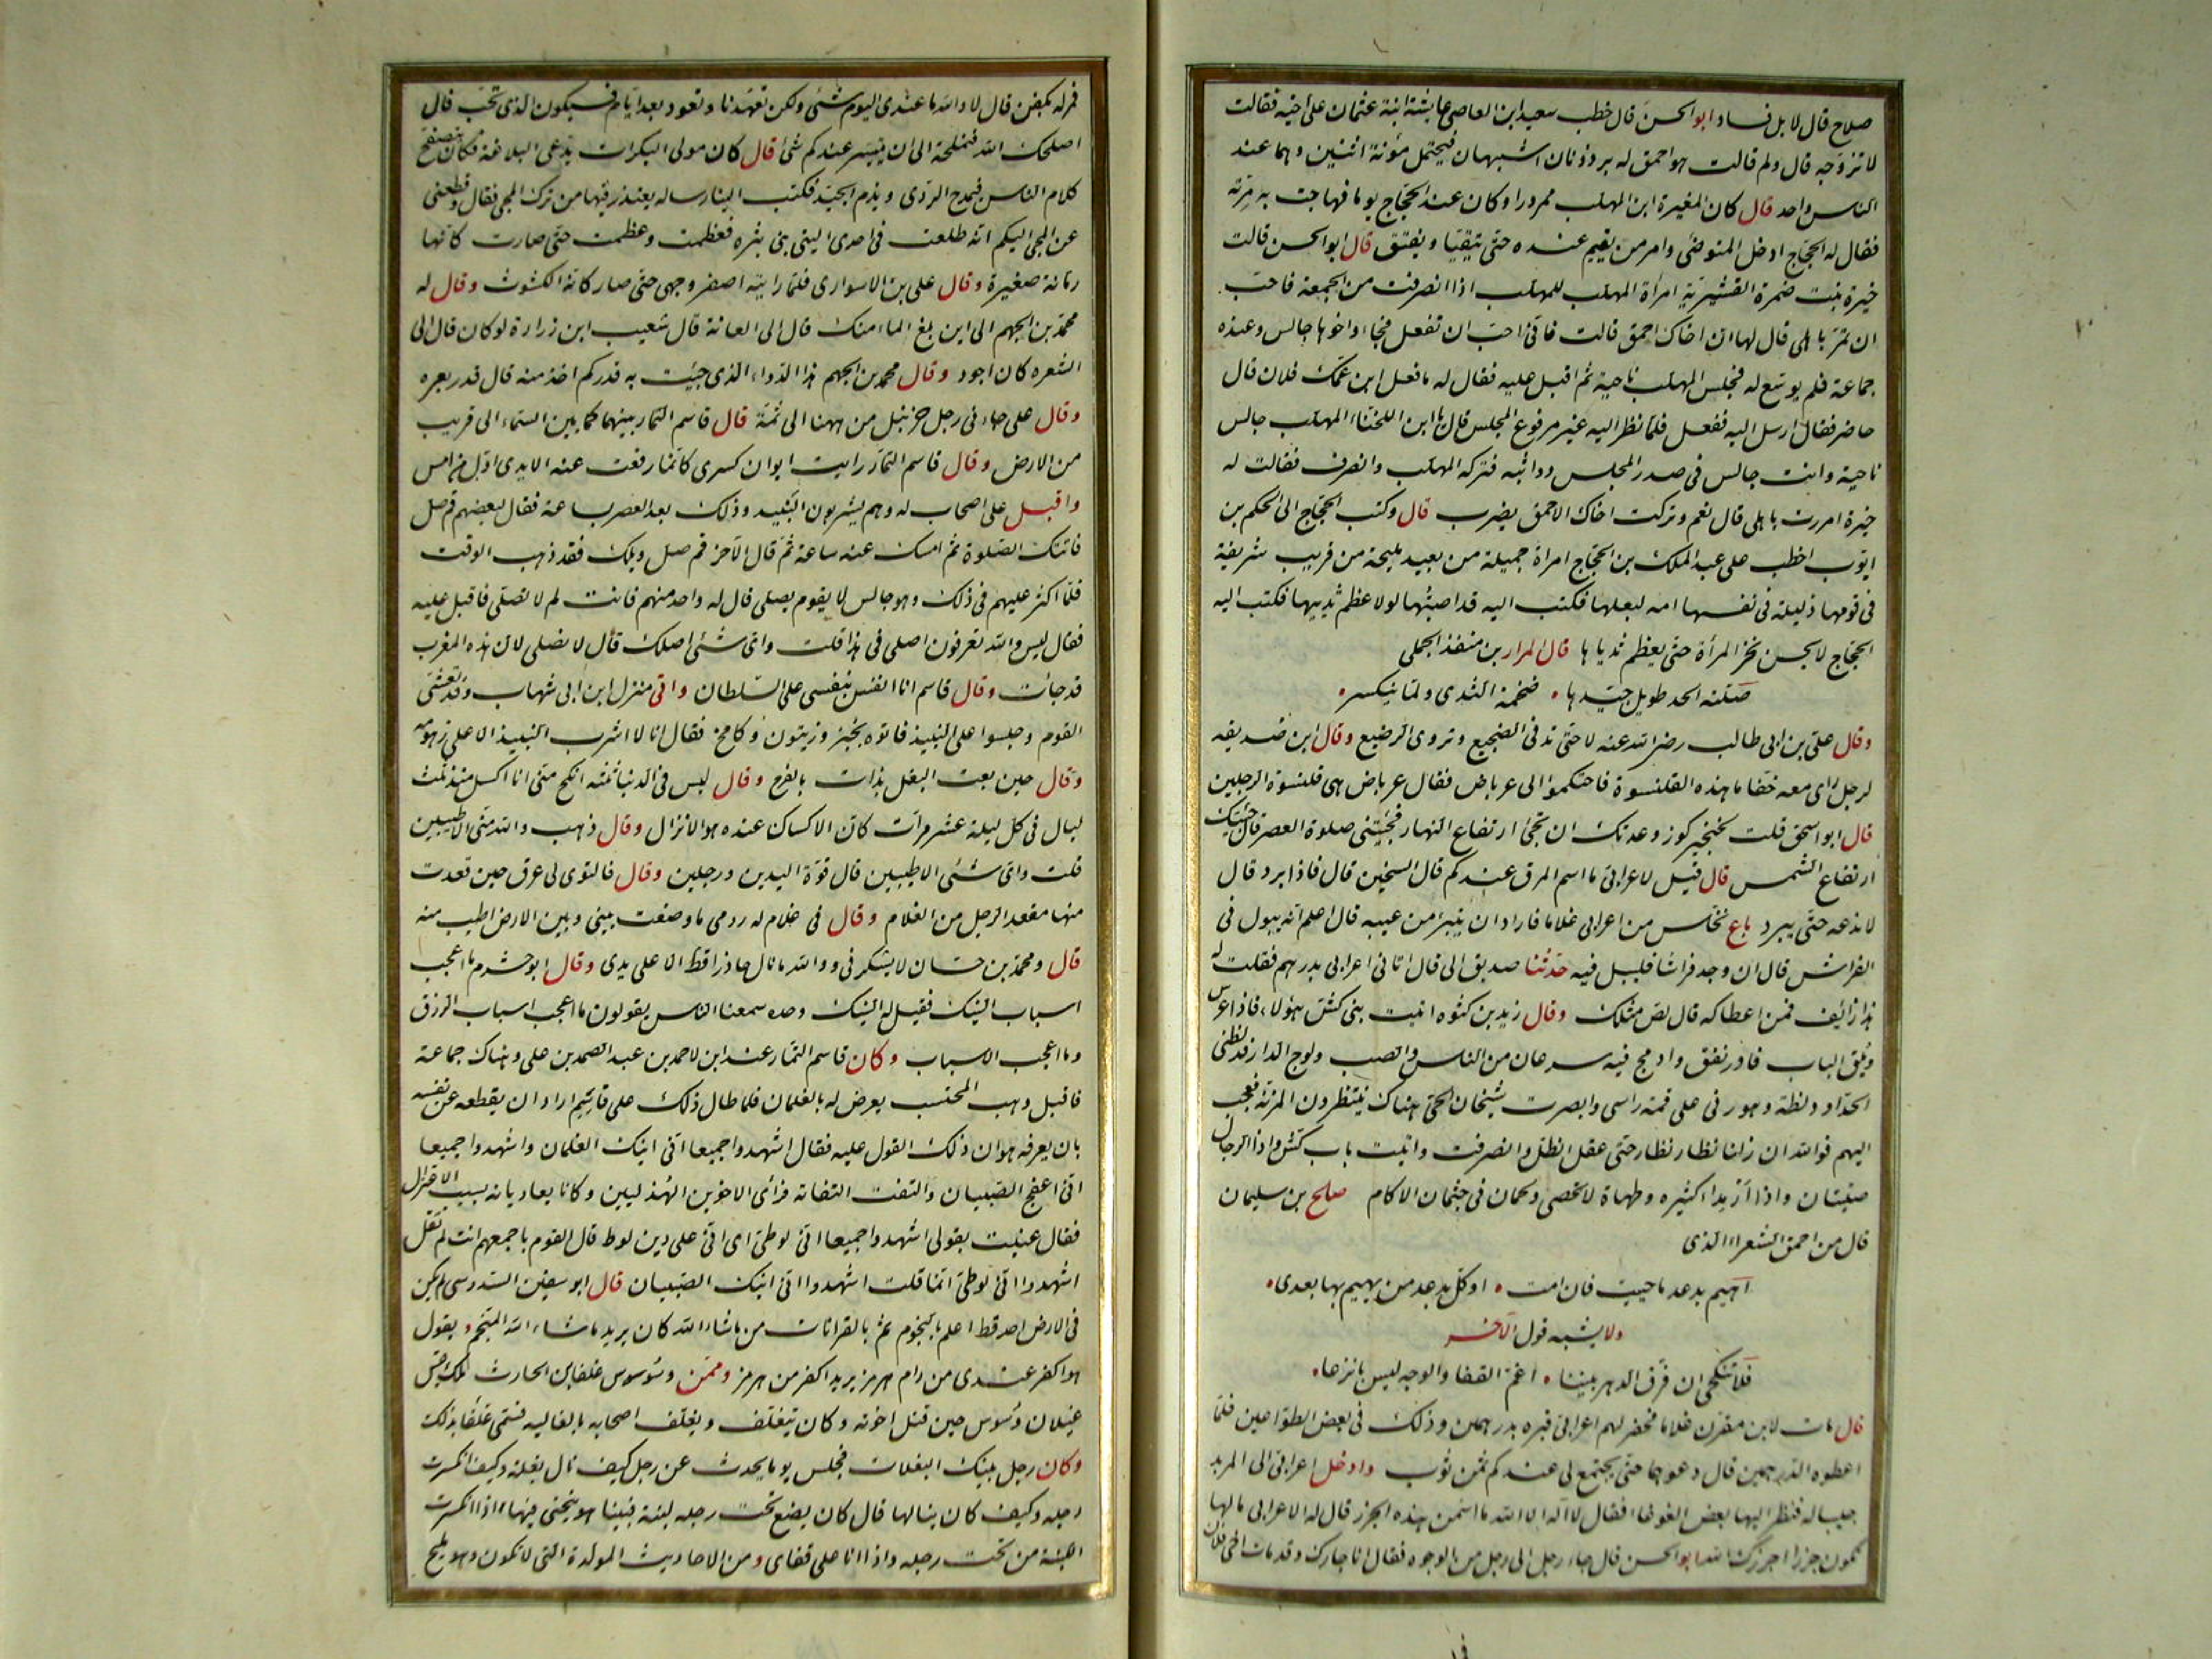 صلاح قال لا بل فساد ابو الحسن قال خطب سعيد ابن العاصى عايشة ابنة عثمان على اخيه فقالت
لا تزوجه قال ولم قالت هو احمق له برذونان اشبهان فيحتمل مؤنة اثنين وهما عند
الناس واحد قال كان المغيرة ابن المهلب ممرورا وكان عند الحجاج يوما فهاجت به مرته
فقال له الحجاج ادخل المتوضئ وامر من يقيم عنده حتى يتقيا ويفيق قال ابو الحسن قالت
خيرة بنت ضمرة القشيرية امرأة المهلب للمهلب اذا انصرفت من الجمعة فاحب
ان تمر باهلى قال لها ان اخاك احمق قالت فانى احب ان تفعل فجاء واخوها جالس وعنده
جماعة فلم يوسّع له فجلس المهلب ناحية ثم اقبل عليه فقال له ما فعل ابن عمك فلان قال
حاضر فقال ارسل اليه ففعل فلما نظر اليه غير مرفوع المجلس قال يا ابن اللخناء المهلب جالس
ناحية وانت جالس فى صدر المجلس وواثبه فتركه المهلب وانصرف فقالت له
خيرة امررت باهلى قال نعم وتركت اخاك الاحمق يضرب قال وكتب الحجاج الى الحكم بن
ايوب اخطب على عبد الملك بن الحجاج امرأة جميلة من بعيد مليحة من قريب شريفة
فى قومها ذليلة فى نفسها امة لبعلها فكتب اليه قد اصبتها لولا عظم ثدييها فكتب اليه
الحجاج لا يحسن نحر المرأة حتى يعظم ثدياها قال المرار بن منقذ الجملى
صلتة الخد طويل جيدها ضخمة الثدى ولما ينكسر
وقال على بن ابى طالب رضى الله عنه لا حتى تدفى الضجيع وتروى الرضيع وقال ابن صديقه
لرجل راى معه خفا ما هذه القلنسوة فاحتكموا الى عرباض فقال عرباض هى قلنسوة الرجلين
قال ابو اسحق قلت لخنجير كوز وعدتك ان تجئ ارتفاع النهار فجئتنى صلوة العصر قال جئتك
ارتفاع الشمس قال قيل لاعرابى ما اسم المرق عندكم قال السخين قال فاذا برد قال
لا ندعه حتى يبرد باع نخاس من اعرابى غلاما فاراد ان يتبرا من عيبه قال اعلم انه يبول فى
الفراش قال ان وجد فراشا فليبل فيه حدثنا صديق لى قال اتانى اعرابى بدرهم فقلت له
هذا زائف فمن اعطاكه قال لص مثلك وقال زيد بن كثوه اتيت بنى كش هولاء فاذا عرس
وبلق الباب فادرنفق وادمج فيه سرعان من الناس والصب ولوج الدار فدلظنى
الحداد دلظة دهورنى على قمة راسى وابصرت شيخان الحى هناك ينتظرون المزية فعجت
اليهم فوالله ان زلنا نظار نظار حتى عقل الظل وانصرفت واتيت باب كش واذا الرجال
صتيتان واذا ازيد اكثيره وطهاة لا تحصى ولحمان فى جثمان الاكام صلح بن سليمان
قال من احمق الشعراء الذى
اهيم بدعد ما حييت فان امت اوكل بدعد من يهيم بها بعدى
ولا يشبه قول الاخر
فلا تنكحى ان فرق الدهر بيننا اغم القفا والوجه ليس بانزعا
قال مات لابن مقرن غلاما فحفر لهم اعرابى قبره بدرهمين وذلك فى بعض الطواعين فلما
اعطوه الدرهمين قال دعوهما حتى يجتمع لى عندكم ثمن ثوب وادخل اعرابى الى المربد
جليبا له فنظر اليها بعض الغوغاء فقال لا اله الا الله ما اسمن هذه الجزر قال له الاعرابى ما لها
تكون جزرا اجزرك الله ابو الحسن قال جاء رجل الى رجل من الوجوه فقال انا جارك وقد مات اخى فلان
فمر له بكفن قال لا والله ما عندى اليوم شئ ولكن تعهدنا وتعود بعد ايام فسيكون الذى تحب قال
اصلحك الله فنملحه الى ان يتيسر عندكم شئ قال كان مولى البكرات يدعى البلاغة فكان يتصفح
كلام الناس فيمدح الردى ويذم الجيد فكتب الينا رساله يعتذر فيها من ترك المجى فقال وقطعنى
عن المجى اليكم انه طلعت فى احدى اليتى بنى بثره فعظمت وعظمت حتى صارت كانها
رمانة صغيرة وقال على بن الاسوارى فلما رايته اصفر وجهى حتى صار كانه الكشوث وقال له
محمد بن الجهم الى اين بلغ الماء منك قال الى العانة قال شعيب ابن زرارة لو كان قال الى
الشعره كان اجود وقال محمد بن الجهم هذا الدواء الذى جئت به قدر كم اخذ منه قال قدر بعره
وقال على جاءنى رجل حزنبل من ههنا الى ثمة قال قاسم التمار بينهما كما بين السماء الى قريب
من الارض وقال قاسم التمار رايت ايوان كسرى كانما رفعت عنه الايدى اول من امس
واقبل على اصحاب له وهم يشربون النبيذ وذلك بعد العصر بساعة فقال لبعضهم قم صل
فاتتك الصلوة ثم امسك عنه ساعة ثم قال لاخر قم صل ويلك فقد ذهب الوقت
فلما اكثر عليهم فى ذلك وهو جالس لا يقوم يصلى قال له واحد منهم فانت لم لا تصلى فاقبل عليه
فقال ليس والله تعرفون اصلى فى هذا قلت واى شئ اصلك قال لا نصلى لان هذه المغرب
قد جائت وقال قاسم انا انفس بنفسى على السلطان واتى منزل ابن ابى شهاب وقد تعشى
القوم وجلسوا على النبيذ فاتوه بخبز وزيتون وكامخ فقال انا لا اشرب النبيذ الا على زهومه
وقال حين بعت البغل بدات بالخرج وقال ليس فى الدنيا ثلثه انكح منى انا اكسل منذ ثلث
ليال فى كل ليلة عشر مرات كان الاكسال عنده هو الانزال وقال ذهب والله منى الاطيبين
قلت واى شئ الاطيبين قال قوة اليدين ورجلين وقال فالتوى لى عرق حين قعدت
منها مقعد الرجل من الغلام وقال فى غلام له رومى ما وضعت بينى وبين الارض اطيب منه
قال ومحمد بن حسان لا يشكرنى ووالله ما نال حاذرا قط الا على يدى وقال ابو خشرم ما اعجب
اسباب النيك فقيل له النيك وحده سمعنا الناس يقولون ما اعجب اسباب الرزق
وما اعجب الاسباب وكان قاسم التمار عند ابن لاحمد بن عبد الصمد بن على وهناك جماعة
فاقبل وهب المحتسب يعرض له بالغلمان فلما طال ذلك على قاسم اراد ان يقطعه عن نفسه
بان يعرفه هوان ذلك القول عليه فقال اشهدوا جميعا انى انيك الغلمان واشهدوا جميعا
انى اعفج الصبيان والتفت التفاتة فرأى الاخوين الهذليين وكانا يعاديانه بسبب الاعتزال
فقال عنيت بقولى اشهدوا جميعا انى لوطى اى انى على دين لوط قال القوم باجمعهم انت لم تقل
اشهدوا انى لوطى انما قلت اشهدوا انى انيك الصبيان قال ابو سفين السدوسى لم يكن
فى الارض احد قط اعلم بالنجوم ثم بالقرانات من ماشاء الله كان يريد ماشاء الله المنجم ويقول
هو اكفر عندى من رام هرمز يريد اكفر من هرمز وممن وسوس غلفا بن الحارث ملك قيس
عيلان وسوس حين قتل اخوته وكان يتغلف ويغلف اصحابه بالغاليه فسمى غلفا بذلك
وكان رجل ينيك البغلات فجلس يوما يحدث عن رجل كيف نال بغلة وكيف انكسرت
رجله وكيف كان ينالها قال كان يضع تحت رجله لبنة فبينا هو ينحى فيها اذا انكسرت
اللبنة من تحت رجله واذا انا على قفاى ومن الاحاديث المولدة التى لا تكون وهو مليح